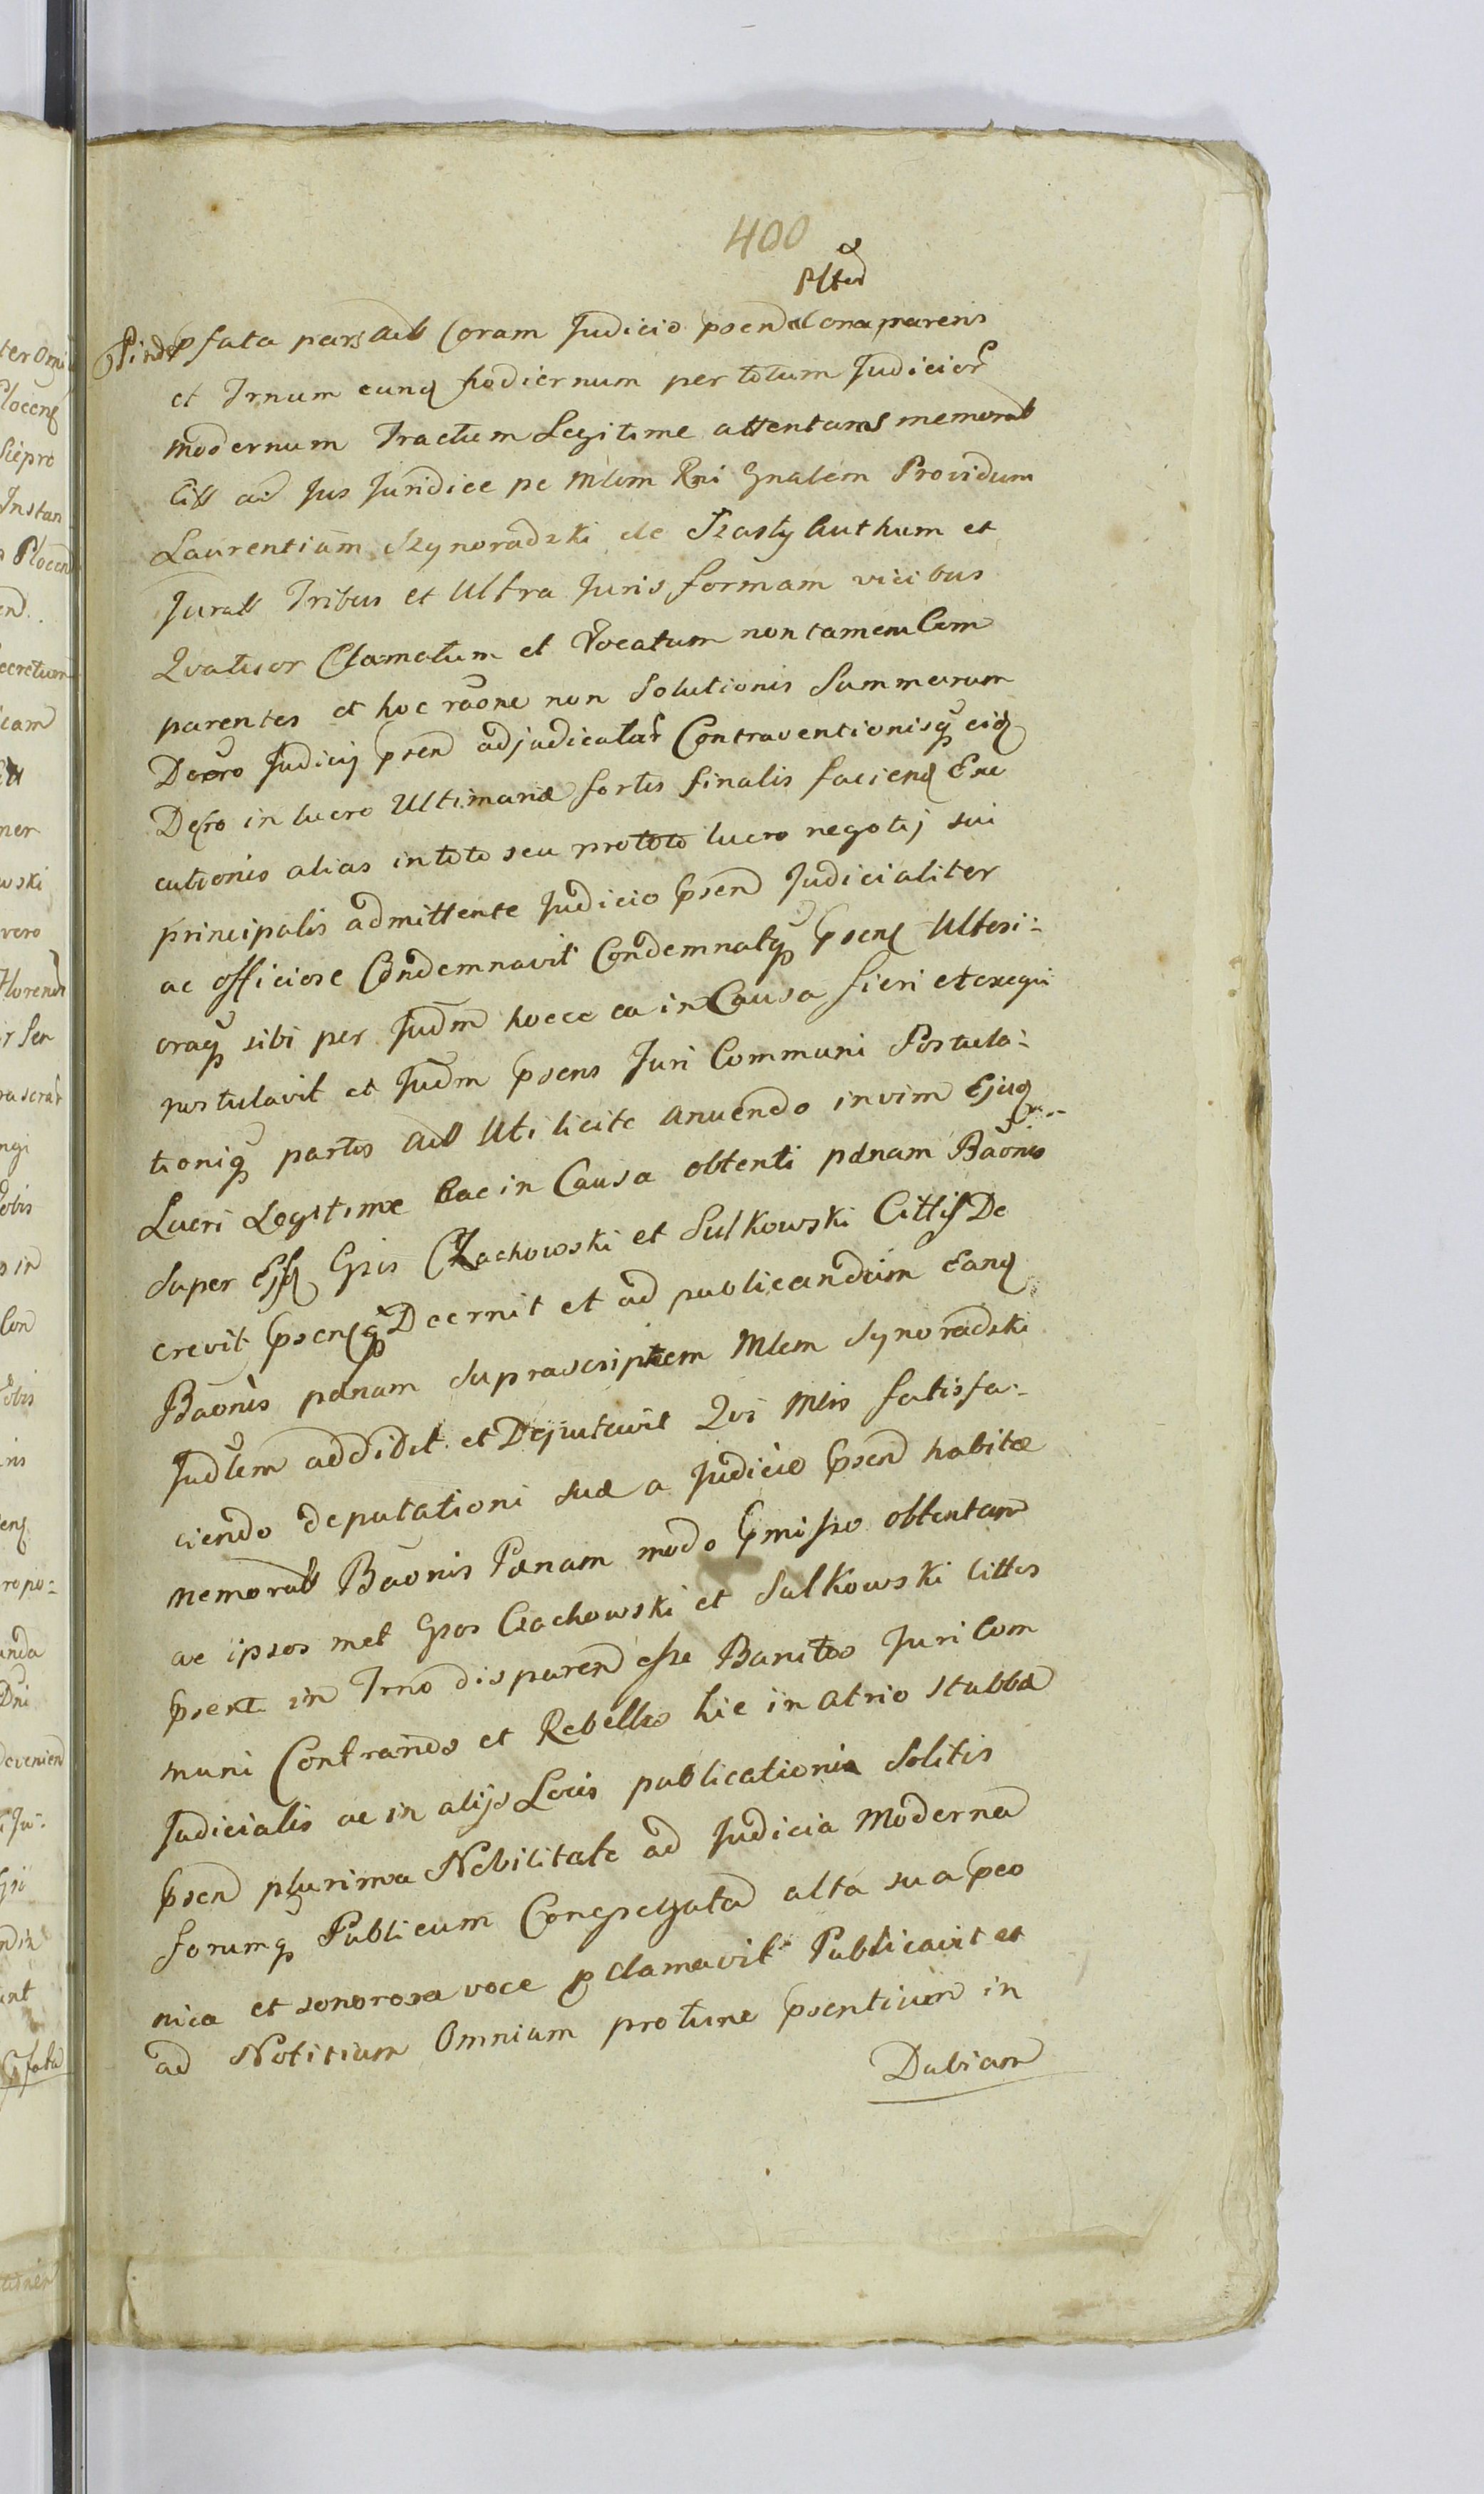 400
pfata pars Act Coram Judicio psend Comparens
et Trnum eunq hodiernum per totum Judicior
modernum Tractum Legitime attentans memorat
Citt ad Jus Juridice pe Mlem Rni Gnalem Providum
Laurentium Szynoradzki de Szasty Authum et
Jurat Tribus et Ultra Juris formam vicibus
Qvatuor Clamatum et Vocatum non tamen Com
parentes et hoc raone non Solutionis Summarum
Decro Judicij psend adjudicatar Contraventionisq eid
Decro in lucro Ultimariae sortis finalis faciend Exe
cutionis alias in toto seu pro toto lucro negotij sui
principalis admittente Judicio psend Judicialiter
ac officiose Condemnavit Condemnatq psens Ulteri-
oraq sibi per Judm hocce ea in Causa fieri et exequi
postulavit et Judm psens Juri Communi Postula-
tioniq partis Act Uti licite anuendo in vim Ejusd
Lucri Legitime hac in Causa obtenti paenam Baonis
super Gsis Czachowski et Sulkowski Cittis De
crevit psensq Decernit et ad publicandum eand
Baonis paenam suprascriptem Mlem Synoradzki
Judlem addidit et Deputavit Qui Mlis satisfa-
ciendo deputationi suae a Judicio psend habitae
memorat Baonis Paenam modo pmisso obtentam
ac ipsos met Gsos Czachowski et Sulkowski Cittos
psent in Trno disparend esse Banitos Juri Com
muni Contrarios et Rebelles hic in atrio stubbae
Judicialis ac in alijs Locis publicationis Solitis
psend plurima Nobilitate ad Judicia Moderna
forumq Publicum Congregata alta sua
nica et sonorosa voce pclamavit Publicavit et
ad Notitiam Omnium pro tunc psentium in
Dubiam